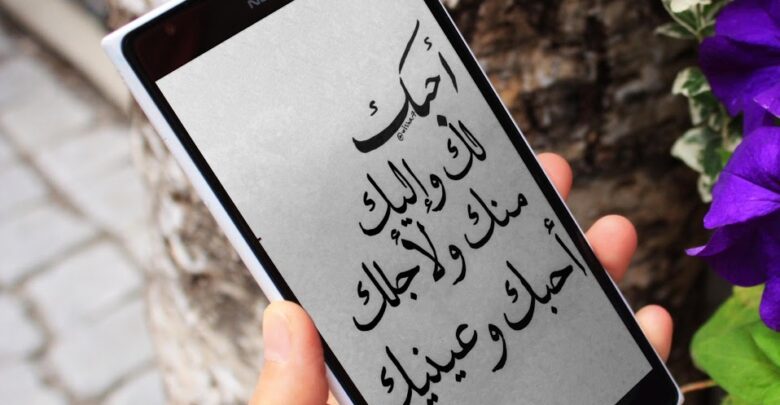 أحبك
لك وإليك
منك ولأجلك
أحبك وعينيك